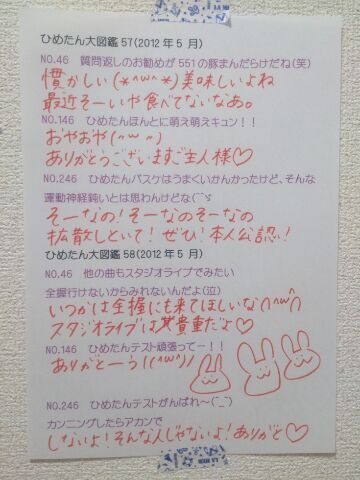 ひめたん大図鑑57(2012年5月)
NO.46 質問返しのお勧めが551の豚まんだらけだね(笑)
懐かしい(*^ω^*)美味しいよね
最近そーいや食べてないなあ。
NO.146 ひめたんほんとに萌え萌えキュン!!
おやおや(^ω^)
ありがとうございますご主人様♡
NO.246 ひめたんバスケはうまくいかんかったけど、そんな
運動神経鈍いとは思わんけどな(¯ゞ
そーなの!そーなのそーなの
拡散しといて!ぜひ!本人公認!
ひめたん大図鑑58(2012年5月)
NO.46 他の曲もスタジオライブでみたい
全握行けないからみれないんだよ(泣)
いつかは全握にも来てほしいな(^ω^)
スタジオライブは貴重だよ♡
NO.146 ひめたんテスト頑張ってー!!
ありがとーう!(^ω^)ノ
NO.246 ひめたんテストがんばれ~(¯_¯)
カンニングしたらアカンで
しないよ!そんな人じゃないよ!ありがと♡